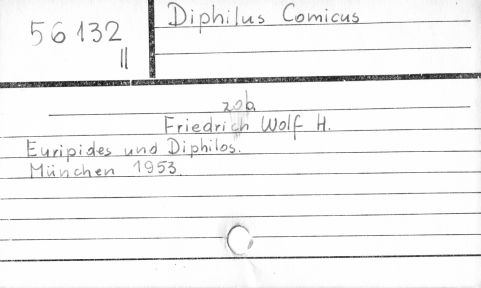 56132
II
Diphilus Comicus
zob.
Friedrich Wolf H.
Euripides und Diphilos.
München 1953.